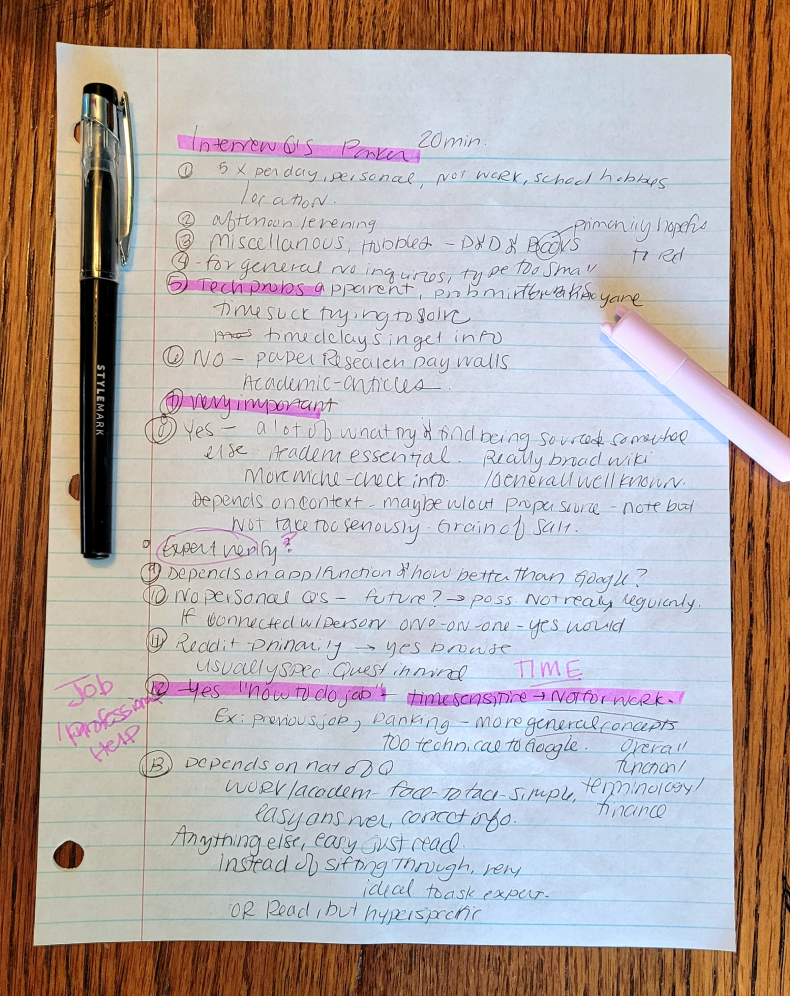 Interview Q's Parker 20min.
① 5 x per day, personal, not work, school hobbys
location.
② afternoon/evening
③ Miscellanous, Hobbies - D&D & Books primarily hopefis
to Rd
④ - for general no inquiries, type too small
⑤ Tech probs apparent, prob
time suck trying to solve
time delays in get info
⑥ NO - paper Research pay walls
Academic-articles.
⑦ very important
⑧ Yes - a lot of what try & find being sourced somewhere
else Academ essential. Really broad wiki
More niche - check info. /generall well known.
Depends on context - maybe w/out proper source - note but
not take too seriously - Grain of Salt.
Expert verify?
⑨ Depends on app/function & how better than Google?
⑩ No personal Q's - future? → poss Not really regularly.
If connected w/person one-on-one - yes would
⑪ Reddit - primarily → yes browse
usually spec. Quest in mind
TIME
⑫ - Yes "how to do job" - time sensitive → Not for work.
Job
/professional
Help
Ex: previous job, banking - more general concepts
too technical to Google. overall
function/
⑬ Depends on nat of Q
work/academ - face-to-face - simple, terminology/
finance
easy answer, correct info.
Anything else, easy just read.
instead of sifting through, very
ideal to ask expert.
OR Read, but hyperspecific
STYLEMARK